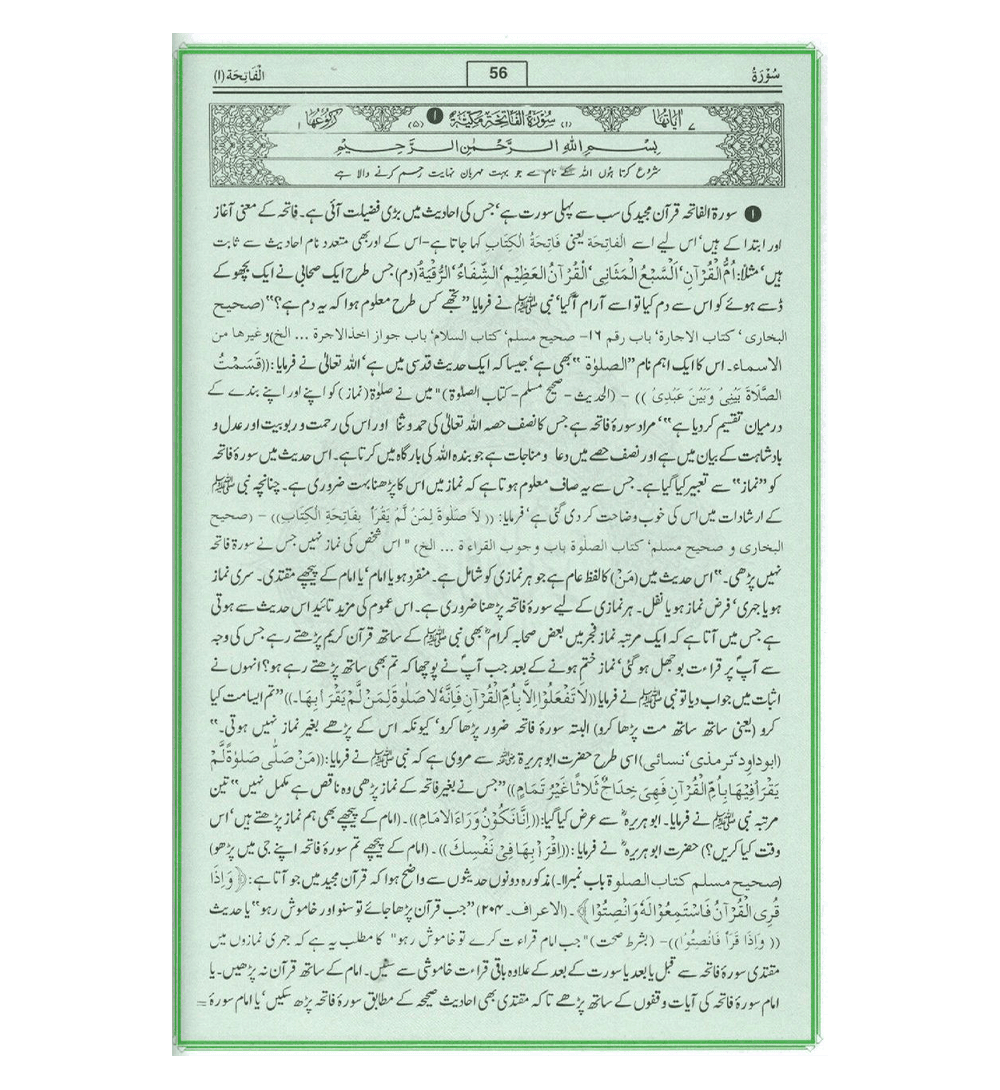 سُوْرَةُ 56 الْفَاتِحَة (۱)
اٰیَاتُهَا ۷ (۱) سُوْرَةُ الْفَاتِحَةِ مَکِّیَّةٌ ۱ (۵) رُکُوْعُهَا ۱
بِسْمِ اللّٰهِ الرَّحْمٰنِ الرَّحِیْمِ
شروع کرتا ہوں اللہ کے نام سے جو بہت مہربان نہایت رحم کرنے والا ہے
۱ سورۃ الفاتحہ قرآن مجید کی سب سے پہلی سورت ہے‘ جس کی احادیث میں بڑی فضیلت آئی ہے۔ فاتحہ کے معنی آغاز
اور ابتدا کے ہیں‘ اس لیے اسے الْفَاتِحَة یعنی فَاتِحَةُ الْكِتَابِ کہا جاتا ہے-اس کے اور بھی متعدد نام احادیث سے ثابت
ہیں‘ مثلاً: اُمُّ الْقُرْآنِ‘ اَلسَّبْعُ الْمَثَانِی‘ اَلْقُرْآنُ الْعَظِیْم‘ الشِّفَاءُ‘ الرُّقْیَةُ (دم) جس طرح ایک صحابی نے ایک بچھو کے
ڈسے ہوئے کو اس سے دم کیا تو اسے آرام آگیا‘ نبی ﷺ نے فرمایا ”تجھے کس طرح معلوم ہوا کہ یہ دم ہے؟“ (صحیح
البخاری‘ کتاب الاجارة‘ باب رقم ۱۶- صحیح مسلم‘ کتاب السلام‘ باب جواز اخذ الاجرة ... الخ) وغیرها من
الاسماء۔ اس کا ایک اہم نام ”الصلوٰة“ بھی ہے‘ جیسا کہ ایک حدیث قدسی میں ہے‘ اللہ تعالیٰ نے فرمایا: ((قَسَمْتُ
الصَّلَاةَ بَیْنِیْ وَبَیْنَ عَبْدِیْ )) - (الحدیث - صحیح مسلم- کتاب الصلوٰة) ”میں نے صلوٰة (نماز) کو اپنے اور اپنے بندے کے
درمیان تقسیم کردیا ہے“‘ مراد سورۂ فاتحہ ہے جس کا نصف حصہ اللہ تعالیٰ کی حمد وثنا اور اس کی رحمت و ربوبیت اور عدل و
بادشاہت کے بیان میں ہے اور نصف حصے میں دعا ومناجات ہے جو بندہ اللہ کی بارگاہ میں کرتا ہے۔ اس حدیث میں سورۂ فاتحہ
کو ”نماز“ سے تعبیر کیا گیا ہے۔ جس سے یہ صاف معلوم ہوتا ہے کہ نماز میں اس کا پڑھنا بہت ضروری ہے۔ چنانچہ نبی ﷺ
کے ارشادات میں اس کی خوب وضاحت کردی گئی ہے‘ فرمایا: (( لَا صَلٰوةَ لِمَنْ لَّمْ یَقْرَأْ بِفَاتِحَةِ الْكِتَابِ)) - (صحیح
البخاری و صحیح مسلم‘ کتاب الصلٰوة باب وجوب القراءة ... الخ) ”اس شخص کی نماز نہیں جس نے سورۂ فاتحہ
نہیں پڑھی۔“ اس حدیث میں (مَنْ) کا لفظ عام ہے جو ہر نمازی کو شامل ہے۔ منفرد ہو یا امام‘ یا امام کے پیچھے مقتدی۔ سری نماز
ہو یا جہری‘ فرض نماز ہو یا نفل۔ ہر نمازی کے لیے سورۂ فاتحہ پڑھنا ضروری ہے۔ اس عموم کی مزید تائید اس حدیث سے ہوتی
ہے جس میں آتا ہے کہ ایک مرتبہ نماز فجر میں بعض صحابہ کرامؓ بھی نبی ﷺ کے ساتھ قرآن کریم پڑھتے رہے جس کی وجہ
سے آپؐ پر قراءت بوجھل ہوگئی‘ نماز ختم ہونے کے بعد جب آپؐ نے پوچھا کہ تم بھی ساتھ پڑھتے رہے ہو؟ انہوں نے
اثبات میں جواب دیا تو نبی ﷺ نے فرمایا ((لَا تَفْعَلُوْا اِلَّا بِاُمِّ الْقُرْآنِ فَاِنَّهُ لَا صَلٰوةَ لِمَنْ لَّمْ یَقْرَأْ بِهَا۔)) ”تم ایسا مت کیا
کرو (یعنی ساتھ ساتھ مت پڑھا کرو) البتہ سورۂ فاتحہ ضرور پڑھا کرو‘ کیونکہ اس کے پڑھے بغیر نماز نہیں ہوتی۔“
(ابوداود‘ ترمذی‘ نسائی) اسی طرح حضرت ابو ہریرة رضی اللہ عنہ سے مروی ہے کہ نبی ﷺ نے فرمایا: ((مَنْ صَلّٰی صَلٰوةً لَّمْ
یَقْرَأْ فِیْهَا بِاُمِّ الْقُرْآنِ فَهِیَ خِدَاجٌ ثَلَاثًا غَیْرُ تَمَامٍ)) ”جس نے بغیر فاتحہ کے نماز پڑھی وہ ناقص ہے مکمل نہیں“ تین
مرتبہ نبی ﷺ نے فرمایا۔ ابوہریرہؓ سے عرض کیا گیا: ((اِنَّا نَكُوْنُ وَرَاءَ الْاِمَامِ))۔ (امام کے پیچھے بھی ہم نماز پڑھتے ہیں‘ اس
وقت کیا کریں؟) حضرت ابوہریرہؓ نے فرمایا: ((اِقْرَأْ بِهَا فِیْ نَفْسِكَ))۔ (امام کے پیچھے تم سورۂ فاتحہ اپنے جی میں پڑھو)
(صحیح مسلم کتاب الصلٰوة باب نمبر۱۱۔) مذکورہ دونوں حدیثوں سے واضح ہوا کہ قرآن مجید میں جو آتا ہے: ﴿ وَاِذَا
قُرِیَ الْقُرْآنُ فَاسْتَمِعُوْا لَهٗ وَاَنْصِتُوْا ﴾۔ (الاعراف۔ ۲۰۴) ”جب قرآن پڑھا جائے تو سنو اور خاموش رہو“ یا حدیث
(( وَاِذَا قَرَأَ فَاَنْصِتُوْا))- (بشرط صحت) ”جب امام قراءت کرے تو خاموش رہو“ کا مطلب یہ ہے کہ جہری نمازوں میں
مقتدی سورۂ فاتحہ سے قبل یا بعد یا سورت کے بعد کے علاوہ باقی قراءت خاموشی سے سنیں۔ امام کے ساتھ قرآن نہ پڑھیں۔ یا
امام سورۂ فاتحہ کی آیات وقفوں کے ساتھ پڑھے تاکہ مقتدی بھی احادیث صحیحہ کے مطابق سورۂ فاتحہ پڑھ سکیں‘ یا امام سورۂ =